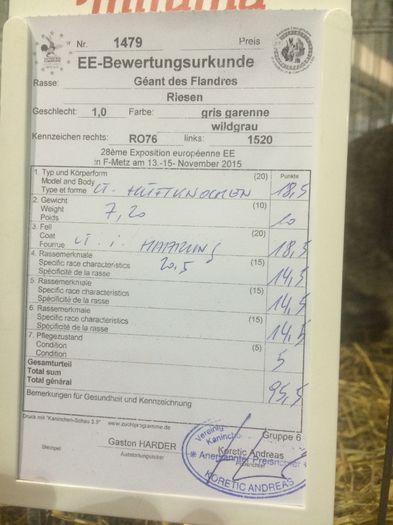 Nr. 1479 Preis
EE-Bewertungsurkunde
Rasse: Géant des Flandres
Riesen
Geschlecht: 1,0 Farbe: gris garenne
wildgrau
Kennzeichen rechts: RO76 links: 1520
28ème Exposition européenne EE
in F-Metz am 13.-15- November 2015
1. Typ und Körperform (20) Punkte
Model and Body
Type et forme LT. HÜFTKNOCHEN 18,5
2. Gewicht (10)
Weight 7,20
Poids 10
3. Fell (20)
Coat
Fourrue LT. i. HAARUNG 18,5
4. Rassemerkmale (15)
Specific race characteristics 20,5
Spécificité de la rasse 14,5
5. Rassemerkmale (15)
Specific race characteristics
Spécificité de la rasse 14,5
6. Rassemerkmale (15)
Specific race characteristics
Spécificité de la rasse 14,5
7. Pflegezustand (5)
Condition
Condition 5
Gesamturteil
Total sum
Total général 95,5
Bemerkungen für Gesundheit und Kennzeichnung
Druck mit "Kaninchen-Schau 3.5" www.zuchtprogramme.de
Gruppe 6
Gaston HARDER Koretic Andreas
Stempel Ausstellungsleiter Preisrichter
Anerkannter Preisrichter
KORETIC ANDREAS